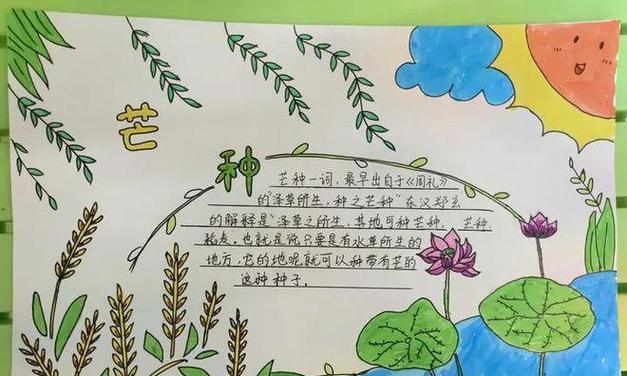 芒
种
芒种一词，最早出自于《周礼》
的“泽草所生，种之芒种”东汉郑玄
的解释是“泽草之所生，其地可种芒种，芒种
稻麦，也就是说只要是有水草所生的
地方，它的地呢就可以种带有芒的
这种种子。